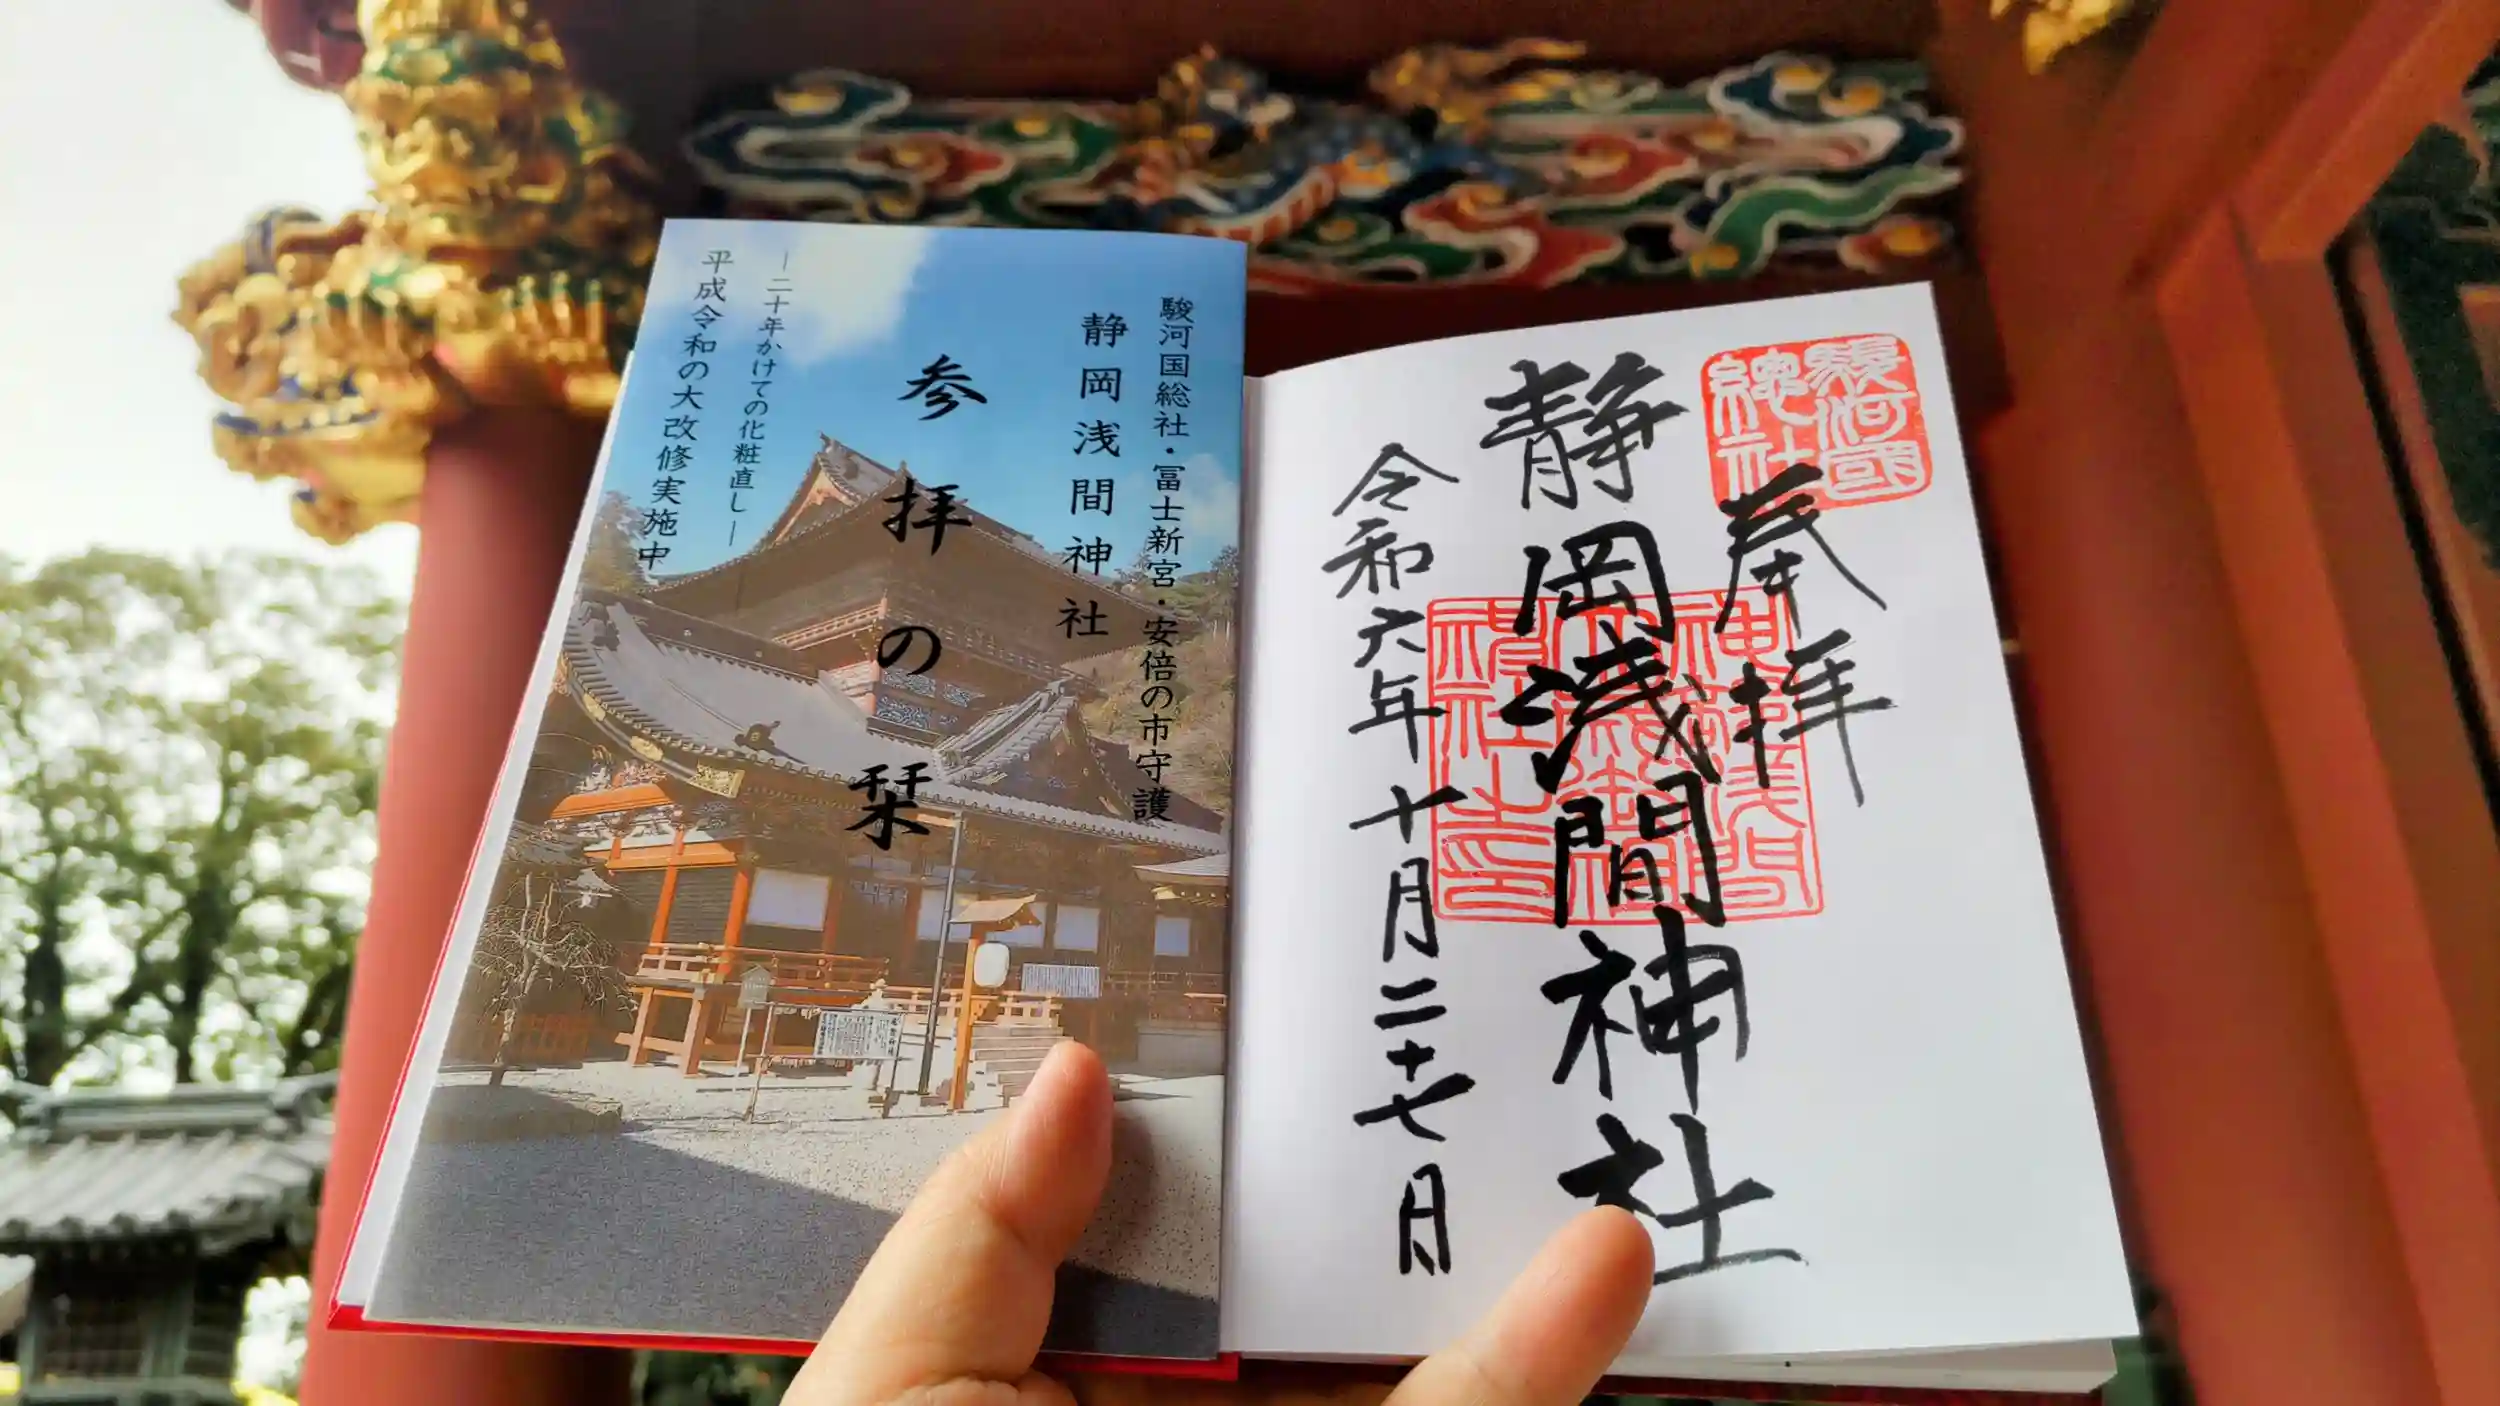 駿河国総社・冨士新宮・安倍の市守護
静岡浅間神社
参拝の栞
―二十年かけての化粧直し―
平成令和の大改修実施中
駿河國
總社
奉拝
静岡浅間神社
令和六年十月二十七日